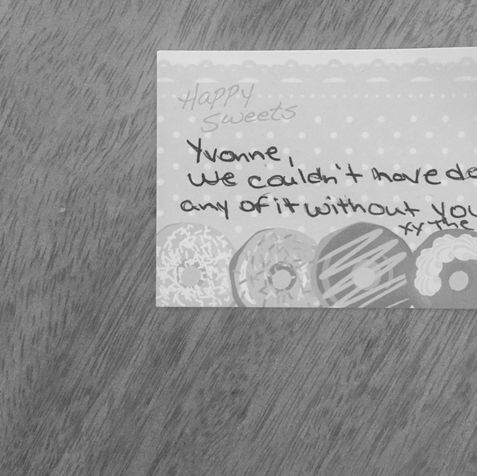 Happy
Sweets
Yvonne,
we couldn't have de
any of it without you
xx The